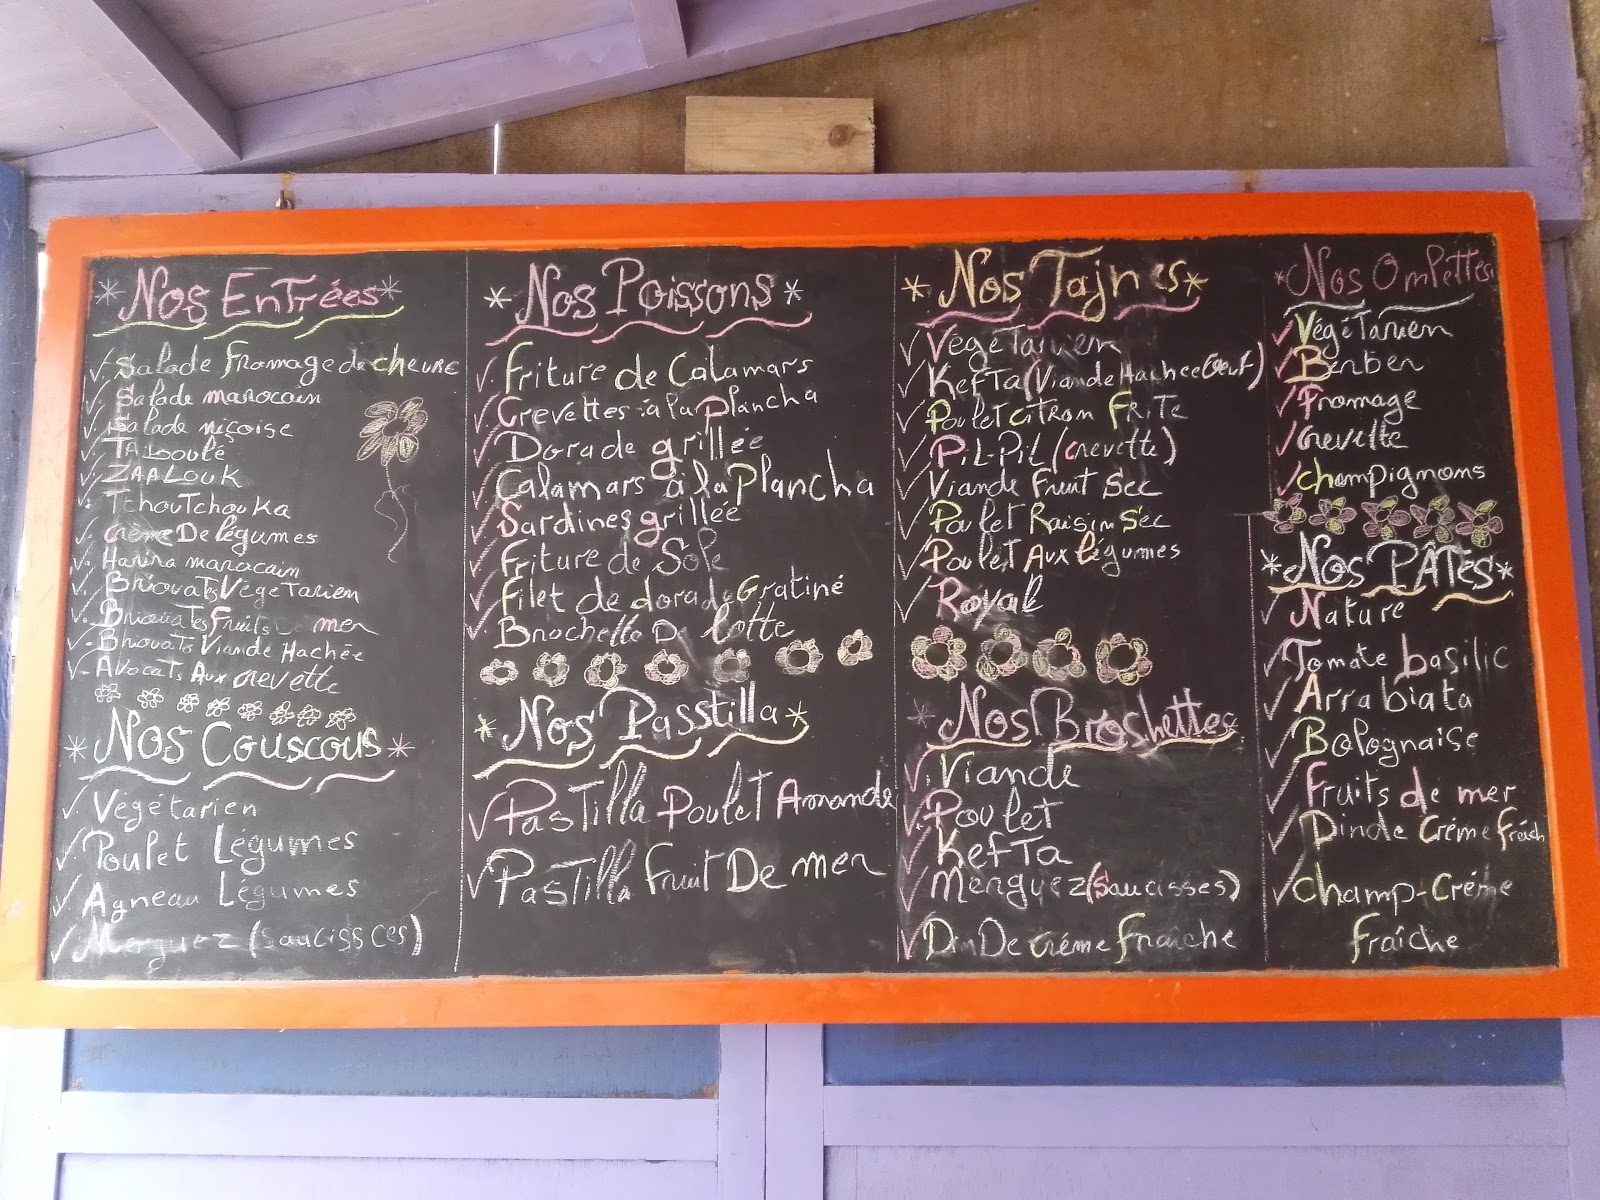 *Nos Entrées*
Salade fromage de chevre
Salade marocain
Salade niçoise
TABoulé
ZAALOUK
TchouTchouKa
crème De légumes
Harira marocain
Briouats VégéTarien
Briouates Fruits De mer
Briouats Viande Hachée
Avocats Aux crevette
*Nos Couscous*
Végétarien
Poulet Légumes
Agneau Légumes
Merguez (saucissces)
*Nos Poissons*
Friture de Calamars
Crevettes à la Plancha
Dorade grillée
Calamars à la Plancha
Sardines grillée
Friture de Sole
Filet de dorade Gratiné
Brochette De lotte
*Nos Passtilla*
PasTilla Poulet Amande
PasTilla fruit De mer
*Nos Tajnes*
VégéTarien
KefTa (Viande Hachee Oeuf)
Poulet citron FRiTe
PiL-PiL (crevette)
Viande Fruit Sec
Poulet Raisin Sec
Poulet Aux légumes
Royal
*Nos Broshettes*
Viande
Poulet
KefTa
Merguez (saucisses)
DinDe créme fraîche
*Nos Omlettes
VégéTarien
Berber
Fromage
Crevette
champignons
*Nos PÂTes*
Nature
Tomate basilic
Arrabiata
Bolognaise
Fruits de mer
Dinde Créme fraich
champ-Créme
fraîche